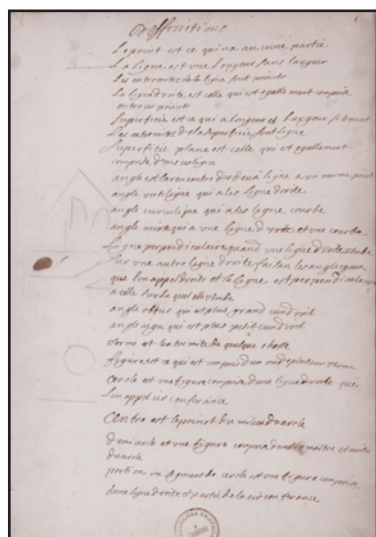 Deffinitions
Le point est ce qui na aucune partie
La Ligne est une Longeur sans Largeur
Les extremites de la Ligne sont points
La Ligne droite est celle qui est egallement comprise
entre ses points
Superficie est ce qui a Longeur et Largeur
Les extremites de la superficie sont Ligne
Superficie plane est celle qui est egallement
comprise
angle est la rencontre de deux Ligne a un mesme point
angle rectiligne qui a les Ligne droite
angle curviligne qui a les Ligne courbe
angle mixte qui a une Ligne droite et une courbe
Ligne perpendiculaire quand une ligne droite tombe
sur une autre Ligne droite
que lon appel droits et la Ligne est perpendiculaire
a celle sur la quelle
angle obtus qui est plus grand
angle aigu qui est plus petit
Terme est
figure est ce qui est compris d'un ou de plusieurs terme
Cercle est une figure comprise d'une ligne que
Lon appel circonferance
Centre est le point du milieu du cercle
demi cercle est une figure comprise
du cercle
portion ou segment de cercle est une figure comprise
d'une ligne droite et partie de la circonferance